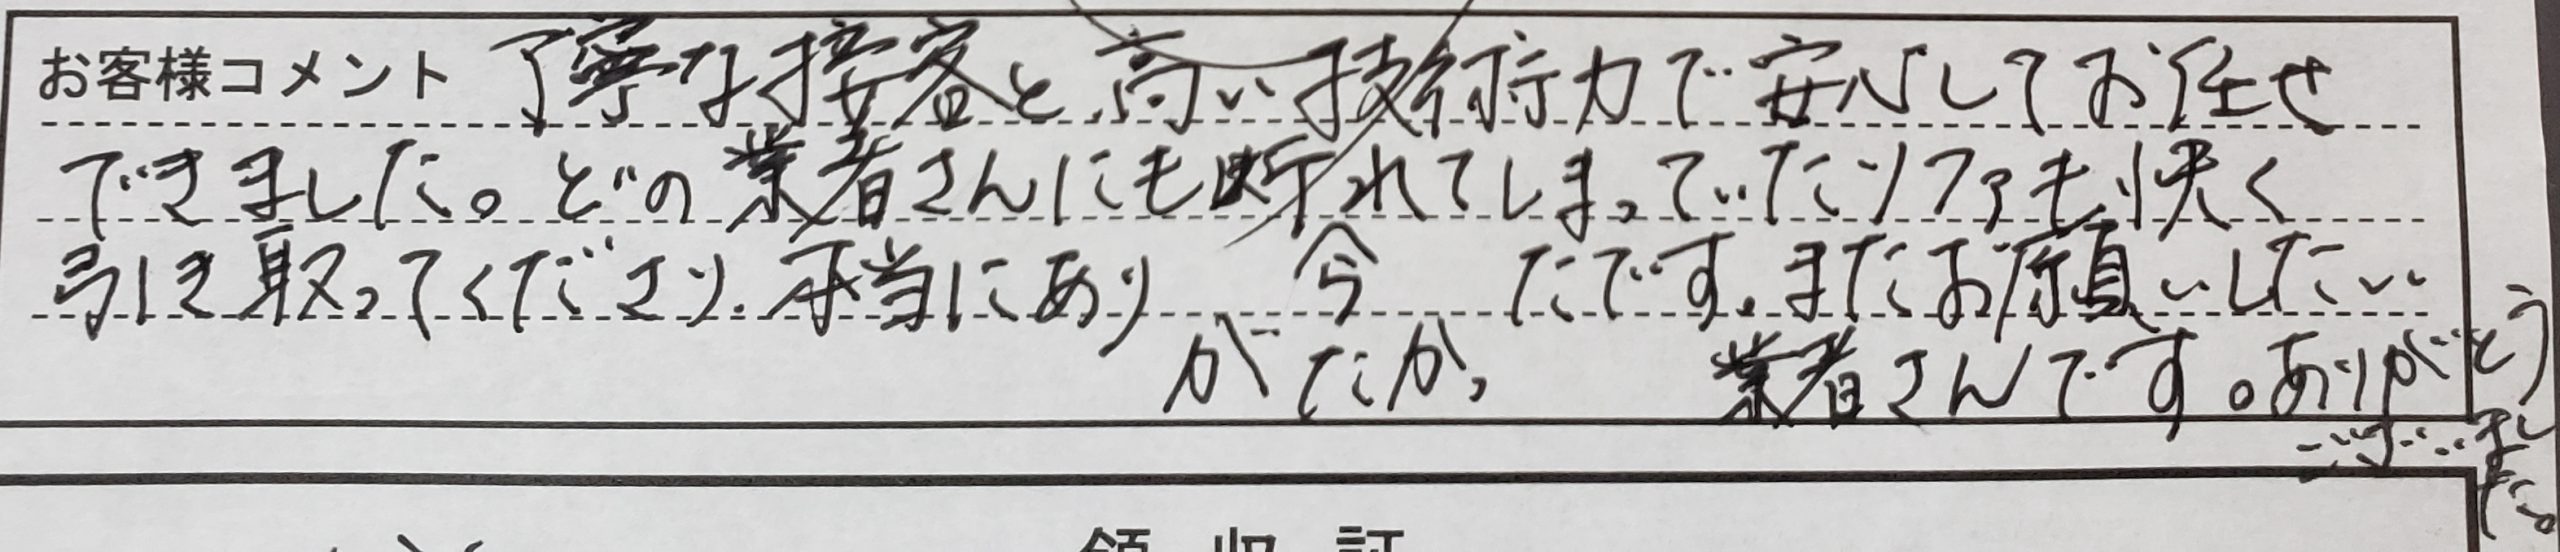 お客様コメント 丁寧な接客と高い技術力で安心してお任せ
できました。どの業者さんにも断られてしまっていたソファも快く
引き取ってくださり、本当にあり
がたかっ
たです。またお願いしたい
業者さんです。ありがとう
ございまし
た。
領収証